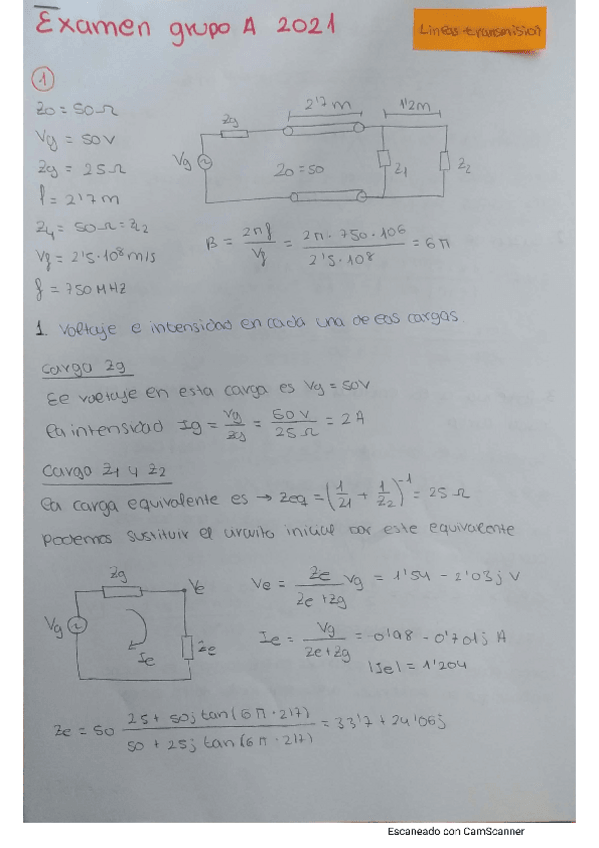 Examen grupo A 2021
Lineas transmision
1
Z0 = 50 Ω
Vg = 50 V
Zg = 25 Ω
l = 2'7 m
Z1 = 50 Ω = Z2
Vf = 2'5·10^8 m/s
f = 750 MHz
Zg
2'7 m
1'2 m
Vg
Z0 = 50
Z1
Z2
B = 2πf / Vf = 2π·750·10^6 / 2'5·10^8 = 6π
1. Voltaje e intensidad en cada una de las cargas
Carga Zg
El voltaje en esta carga es Vg = 50V
La intensidad Ig = Vg / Zg = 50 V / 25 Ω = 2 A
Carga Z1 y Z2
La carga equivalente es → Zeq = (1/Z1 + 1/Z2)^-1 = 25 Ω
Podemos sustituir el circuito inicial por este equivalente
Zg
Ve
Vg
Ie
Ze
Ve = Ze / Ze + Zg Vg = 1'54 - 2'03j V
Ie = Vg / Ze + Zg = 0'98 - 0'701j A
|Ie| = 1'204
Ze = 50 25 + 50j tan(6π·2'7) / 50 + 25j tan(6π·2'7) = 33'7 + 24'06j
Escaneado con CamScanner